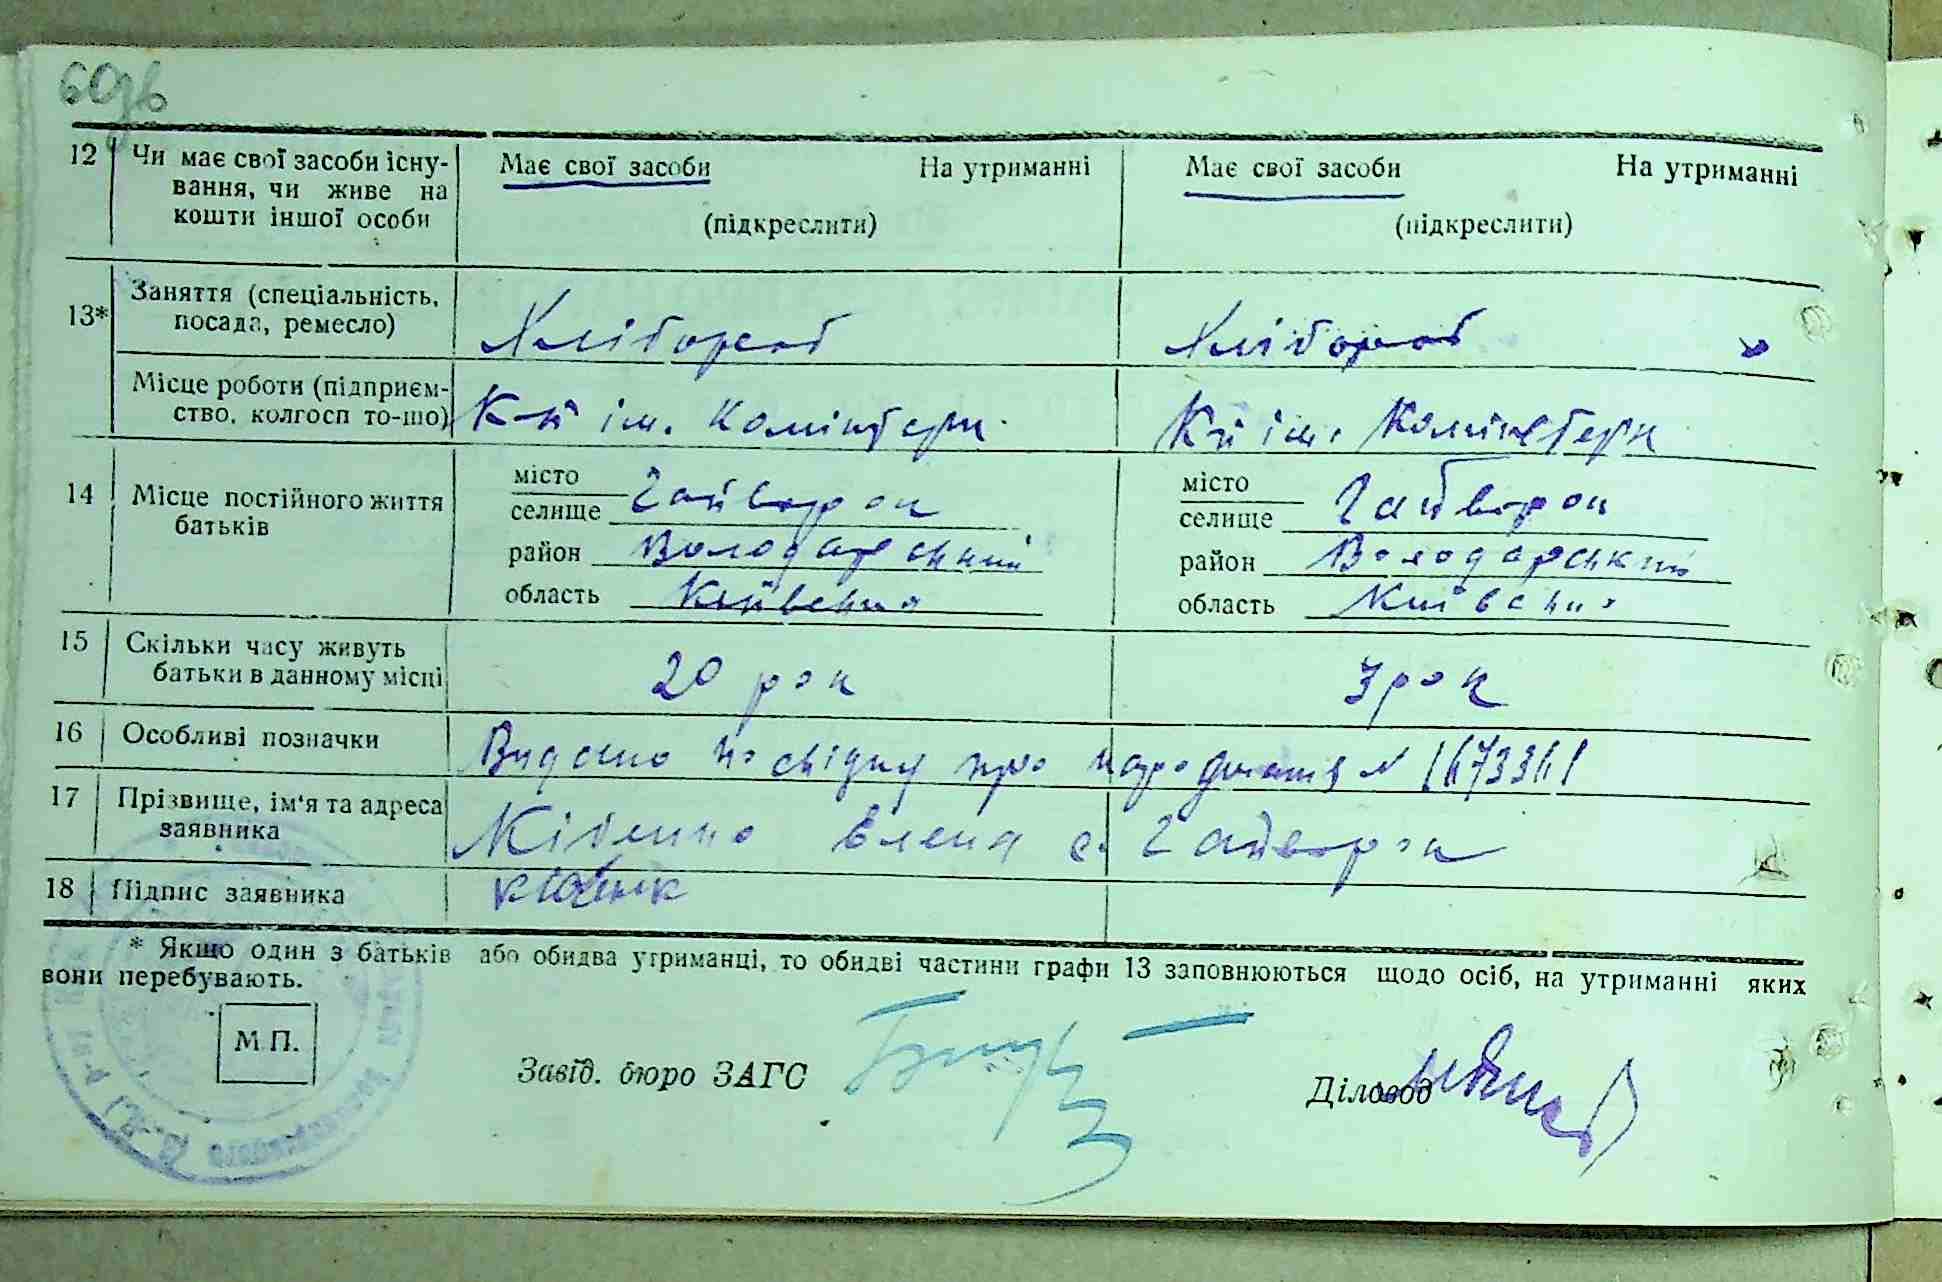 60зв
12 Чи має свої засоби існу- Має свої засоби На утриманні Має свої засоби На утриманні
вання, чи живе на
кошти іншої особи (підкреслити) (підкреслити)
Заняття (спеціальність,
13* посада, ремесло) Хлібороб Хлібороб
Місце роботи (підприєм-
ство, колгосп то-що) К-п ім. Комінтерн К-п ім. Комінтерн
місто місто
14 Місце постійного життя селище Гайворон селище Гайворон
батьків район Володарський район Володарський
область Київська область Київська
15 Скільки часу живуть
батьки в данному місці 20 рок 3 рок
16 Особливі позначки Видано посвідку про народження №
17 Прізвище, ім'я та адреса
заявника Елена с. Гайворон
18 Підпис заявника
* Якщо один з батьків або обидва утриманці, то обидві частини графи 13 заповнюються щодо осіб, на утриманні яких
вони перебувають.
М.П.
Завід. бюро ЗАГС Діловод